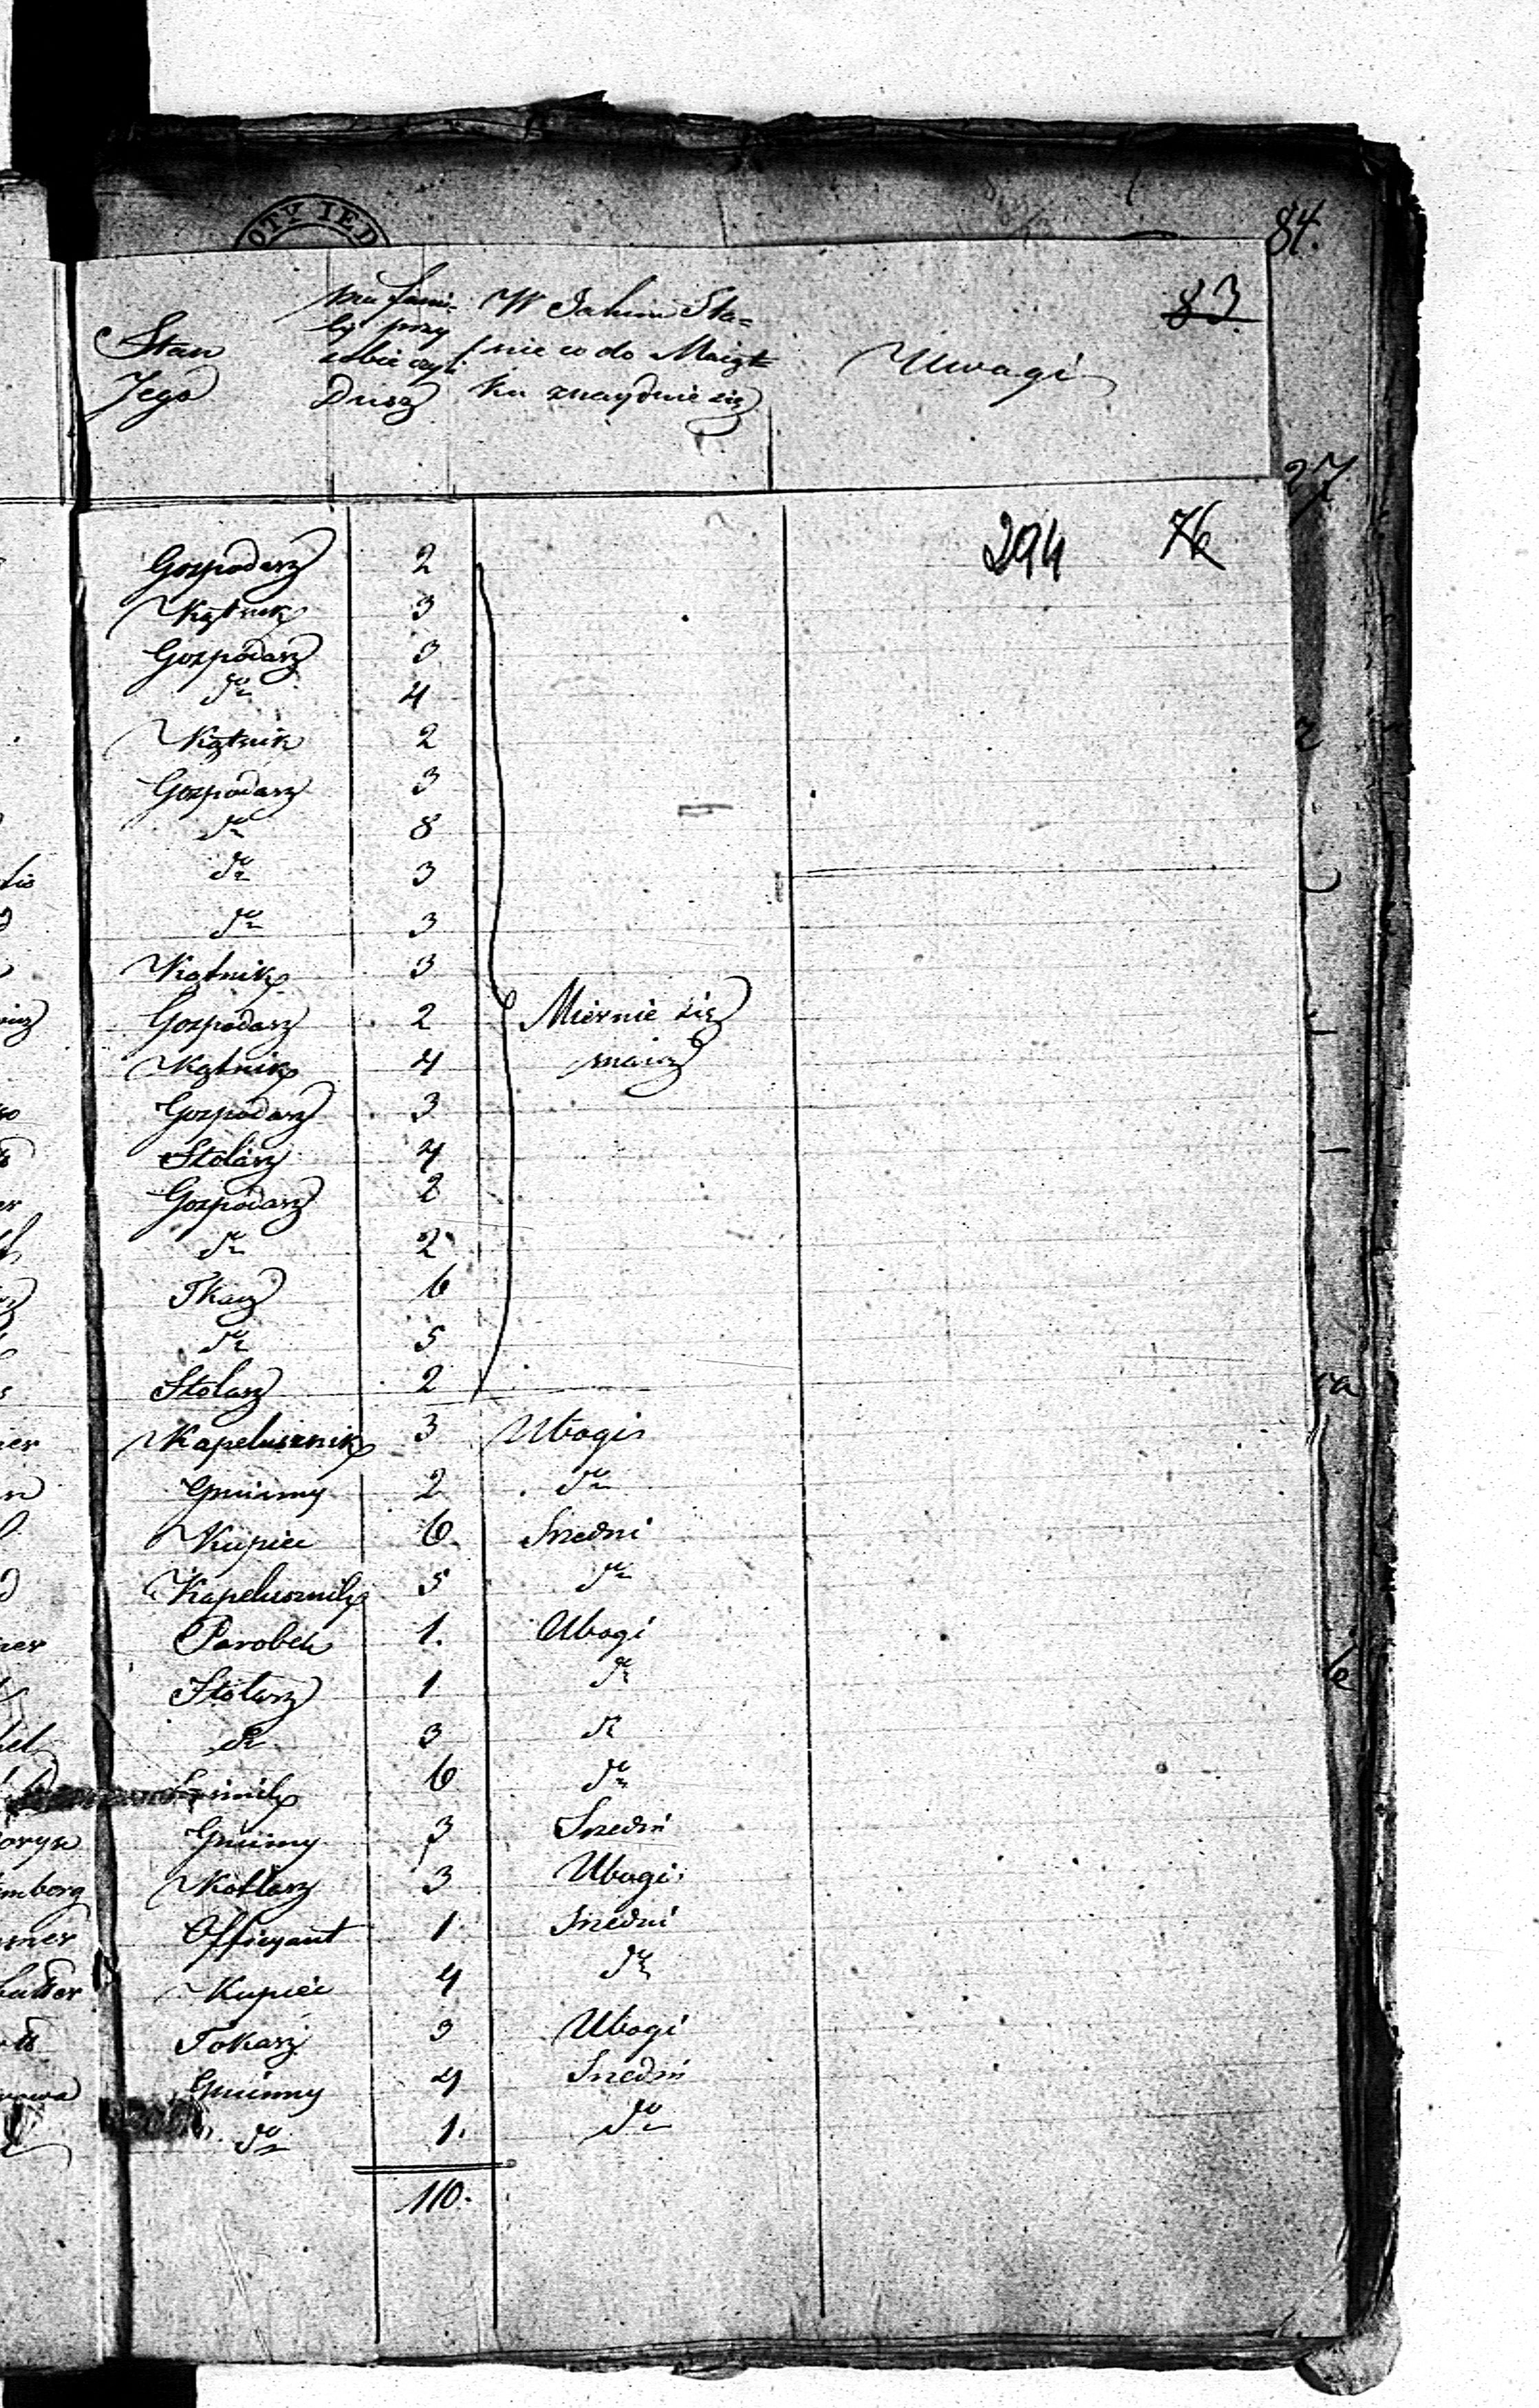 OTY IED
84.
83
Stan Jego
ma fami=
ly przy
sobie czyli
Dusz
W Jakim Sta=
nie co do Maiąt
ku znayduie się
Uwagi
27
294 76
Gospodarz 2
Kątnik 3
Gospodarz 3
do 4
Kątnik 2
Gospodarz 3
do 8
do 3
do 3
Kątnik 3
Gospodarz 2 Miernie się
Kątnik 4 maią
Gospodarz 3
Stolarz 4
Gospodarz 2
do 2
Tkacz 6
do 5
Stolarz 2
Kapelusznik 3 Ubogi
Gminny 2 do
Kupiec 6. Sredni
Kapelusznik 5 do
Parobek 1. Ubogi
Stolarz 1 do
do 3 do
6 do
Gminny 3 Sredni
Kotlarz 3 Ubogi
Officyant 1 Sredni
Kupiec 4 do
Tokarz 3 Ubogi
Gminny 4 Sredni
do 1. do
110.